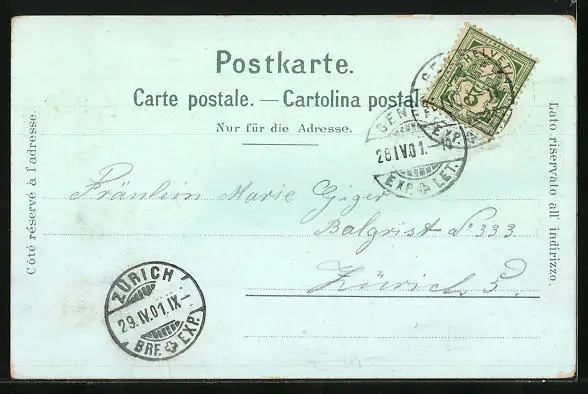 Postkarte.
Carte postale. — Cartolina postale
Nur für die Adresse.
Côté réservé à l'adresse.
Lato riservato all' indirizzo.
HELVETIA
5
GENÈVE
EXP.
28.IV.01.–
EXP. LET.
Fräulein Marie Giger
Balgrist No 333
Zürich 5.
ZÜRICH
29.IV.01.IX–
BRF. EXP.